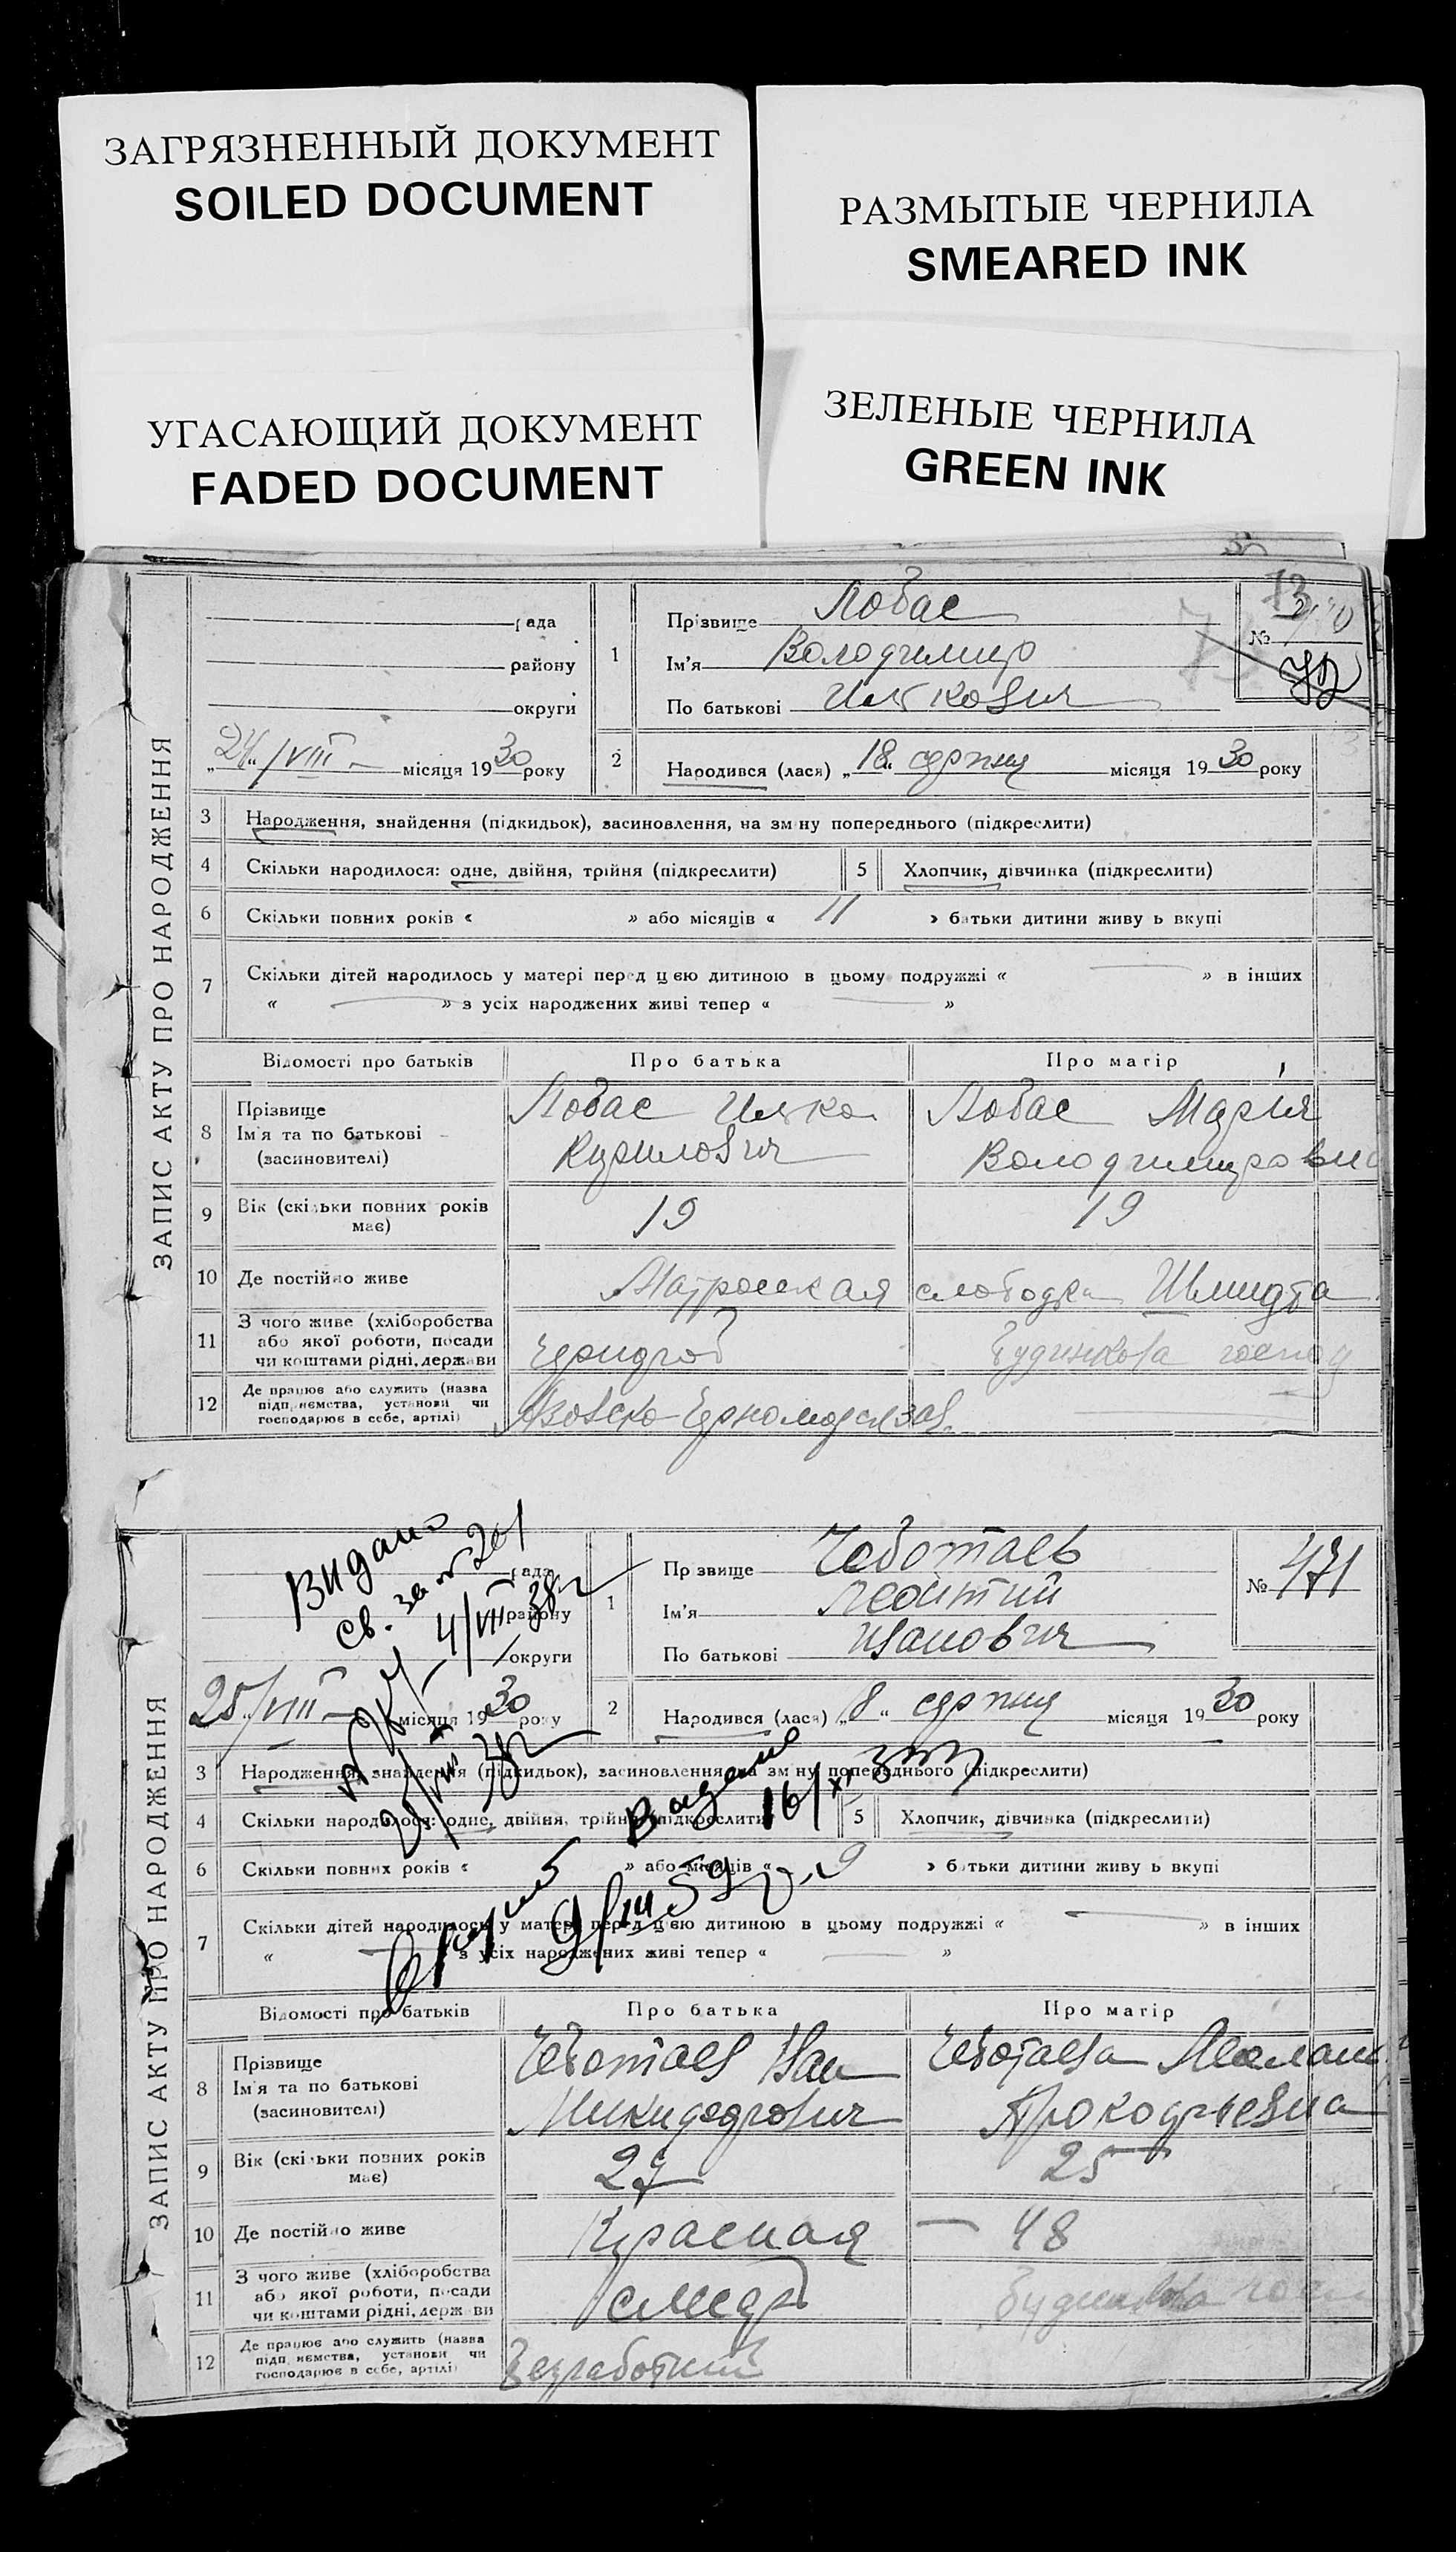 ЗАГРЯЗНЕННЫЙ ДОКУМЕНТ
SOILED DOCUMENT
РАЗМЫТЫЕ ЧЕРНИЛА
SMEARED INK
УГАСАЮЩИЙ ДОКУМЕНТ
FADED DOCUMENT
ЗЕЛЕНЫЕ ЧЕРНИЛА
GREEN INK
ЗАПИС АКТУ ПРО НАРОДЖЕННЯ
рада
району
округи
24/VIII місяця 1930 року
1
Прізвище Лобас
Ім'я Володимир
По батькові Илькович
№
73
72
2 Народився (лася) „18“ серпня місяця 1930 року
3 Народження, знайдення (підкидьок), засиновлення, на зміну попереднього (підкреслити)
4 Скільки народилося: одне, двійня, трійня (підкреслити) 5 Хлопчик, дівчинка (підкреслити)
6 Скільки повних років « » або місяців « 11 » батьки дитини живуть вкупі
7 Скільки дітей народилось у матері перед цією дитиною в цьому подружжі « — » в інших
« — » з усіх народжених живі тепер « — »
Відомості про батьків Про батька Про матір
8 Прізвище
Ім'я та по батькові
(засновителі)
Лобас Илько
Кирилович
Лобас Марія
Володимировна
9 Вік (скільки повних років
має) 19 19
10 Де постійно живе Матросская слободка Шмидта
11 З чого живе (хліборобства
або якої роботи, посади
чи коштами рідні, держави
Чернороб Будинкова господ
12 Де працює або служить (назва
підприємства, установи чи
господарює в себе, артілі)
Азовско-Черномор зав.
ЗАПИС АКТУ ПРО НАРОДЖЕННЯ
рада
району
округи
Видано
св. за № 201
4/VIII 38 г
25/VIII місяця 1930 року
1
Прізвище Чеботаев
Ім'я Леонтий
По батькові Иванович
№ 471
2 Народився (лася) „8“ серпня місяця 1930 року
3 Народження, знайдення (підкидьок), засиновлення, на зміну попереднього (підкреслити)
4 Скільки народилося: одне, двійня, трійня (підкреслити) 5 Хлопчик, дівчинка (підкреслити)
Видано
6 Скільки повних років « » або місяців « 9 » батьки дитини живуть вкупі
7 Скільки дітей народилось у матері перед цією дитиною в цьому подружжі « — » в інших
« — » з усіх народжених живі тепер « — »
9/III 59
Відомості про батьків Про батька Про матір
8 Прізвище
Ім'я та по батькові
(засновителі)
Чеботаев Иван
Никифорович
Чеботаева
Прокофьевна
9 Вік (скільки повних років
має) 27 25
10 Де постійно живе Красная — 48
11 З чого живе (хліборобства
або якої роботи, посади
чи коштами рідні, держави
слесарь Будинкова
12 Де працює або служить (назва
підприємства, установи чи
господарює в себе, артілі)
Безработний